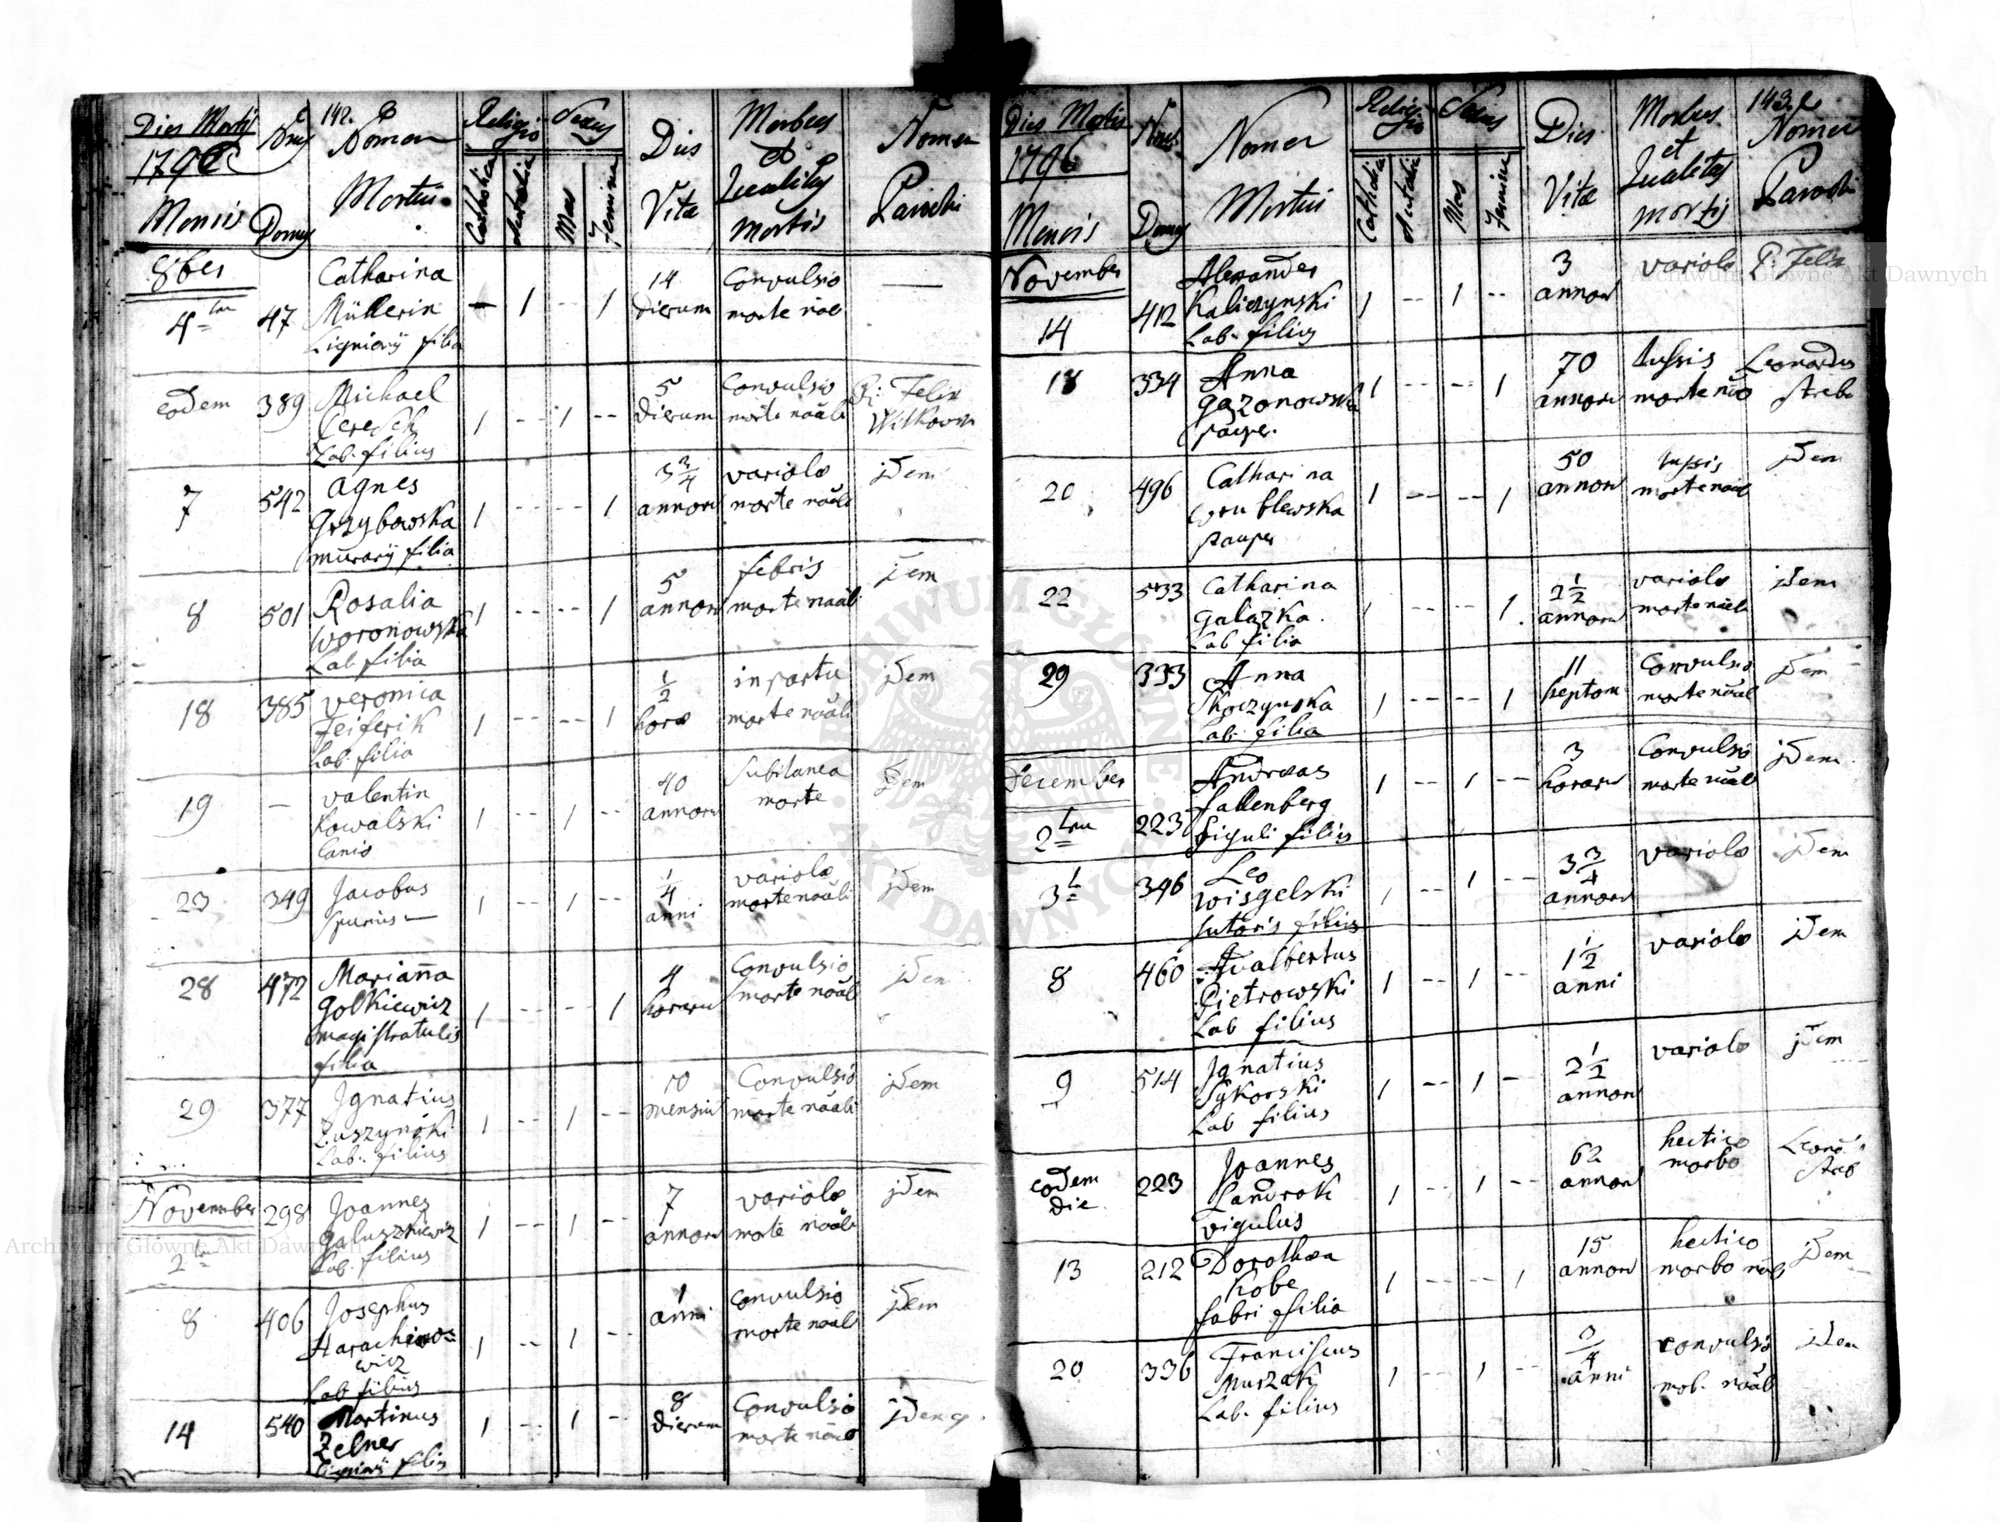 142.
Dies Mortis
1796
Mensis
Domus
Nomen
Mortui
Religio
Catholica
Sexus
Mas
Femina
Dies
Vitæ
Morbus
et
Qualitas
Mortis
Nomen
Parochi
8bes
4ta
47
Catharina
Müllerin
Ligniarÿ filia
1
1
14
dierum
Convulsio
morte
eodem
389
Michael
Lab. filius
1
1
5
dierum
convulsio
morte nääli
P: Felix
7
542
Agnes
Grzybowska
murarÿ filia
1
1
3 3/4
annorum
variolæ
morte nääli
jdem
8
501
Rosalia
Woronowska
Lab filia
1
1
5
annorum
febris
morte nääli
jdem
18
385
Veronica
Feiferik
Lab. filia
1
1
1/2
horæ
in partu
morte nääli
jdem
19
Valentin
Kowalski
1
1
40
annorum
subitanea
morte
jdem
23
349
Jacobus
spurius
1
1
1/4
anni
variolæ
morte nääli
jdem
28
472
Marianna
Golkiewicz
magistratulis
filia
1
1
4
horarum
Convulsio
morte nääli
jdem
29
377
Jgnatius
Zuszynski
Lab. filius
1
1
10
mensium
Convulsio
morte nääli
jdem
November
2
298
Joannes
Galuszkiewicz
Lab. filius
1
1
7
annorum
variolæ
morte nääli
jdem
8
406
Josephus
Harachimo=
wicz
Lab filius
1
1
1
anni
convulsio
morte nääli
jdem
14
540
Martinus
Zelner
filius
1
1
8
dierum
Convulsio
morte
jdem
143.
Dies Mortis
1796
Mensis
Domus
Nomen
Mortui
Religio
Catholica
Sexus
Mas
Femina
Dies
Vitæ
Morbus
et
Qualitas
mortis
Nomen
Parochi
November
14
412
Alexander
Kaliczynski
Lab. filius
1
1
3
annorum
variolæ
P. Felix
18
334
Anna
Gazonowska
pauper.
1
1
70
annorum
tussis
morte
Leonardus
20
496
Catharina
Wrublewska
pauper
1
1
50
annorum
tussis
morte nääli
jdem
22
533
Catharina
Galazka
Lab filia
1
1
2 1/2
annorum
variolæ
morte nääli
jdem
29
333
Anna
Skoczynska
Lab. filia
1
1
11
septem
Convulsio
morte nääli
jdem
December
2
223
Andreas
Fallenberg
figuli filius
1
1
3
horarum
Convulsio
morte nääli
jdem
3
346
Leo
Wisgelski
sutoris filius
1
1
3 3/4
annorum
variolæ
jdem
8
460
Adalbertus
Pietrowski
Lab filius
1
1
1 1/2
anni
variolæ
jdem
9
514
Jgnatius
Sykorski
Lab filius
1
1
2 1/2
annorum
variolæ
jdem
eodem
die
223
Joannes
Landrok
vigulus
1
1
62
annorum
hectico
morbo
13
212
Dorothæa
Kobe
fabri filia
1
1
15
annorum
hectico
morbo
jdem
20
336
Franciscus
Muszak
Lab. filius
1
1
3/4
anni
convulsio
nääli
jdem
Archiwum Główne Akt Dawnych
Archiwum Główne Akt Dawnych
ARCHIWUM GŁÓWNE
AKT DAWNYCH